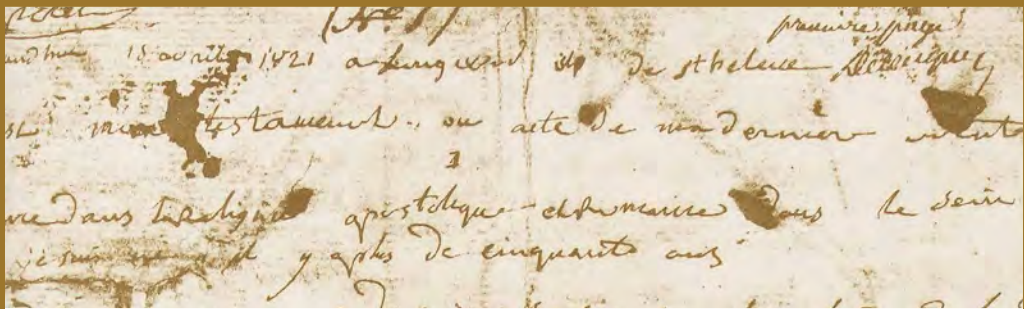 (No 1)
première page
15 avril 1821 a longwood ile de st helene
mon testament. ou acte de ma derniere volonté
1
dans la religion apostolique et romaine dans le sein
je suis né il y a plus de cinquante ans